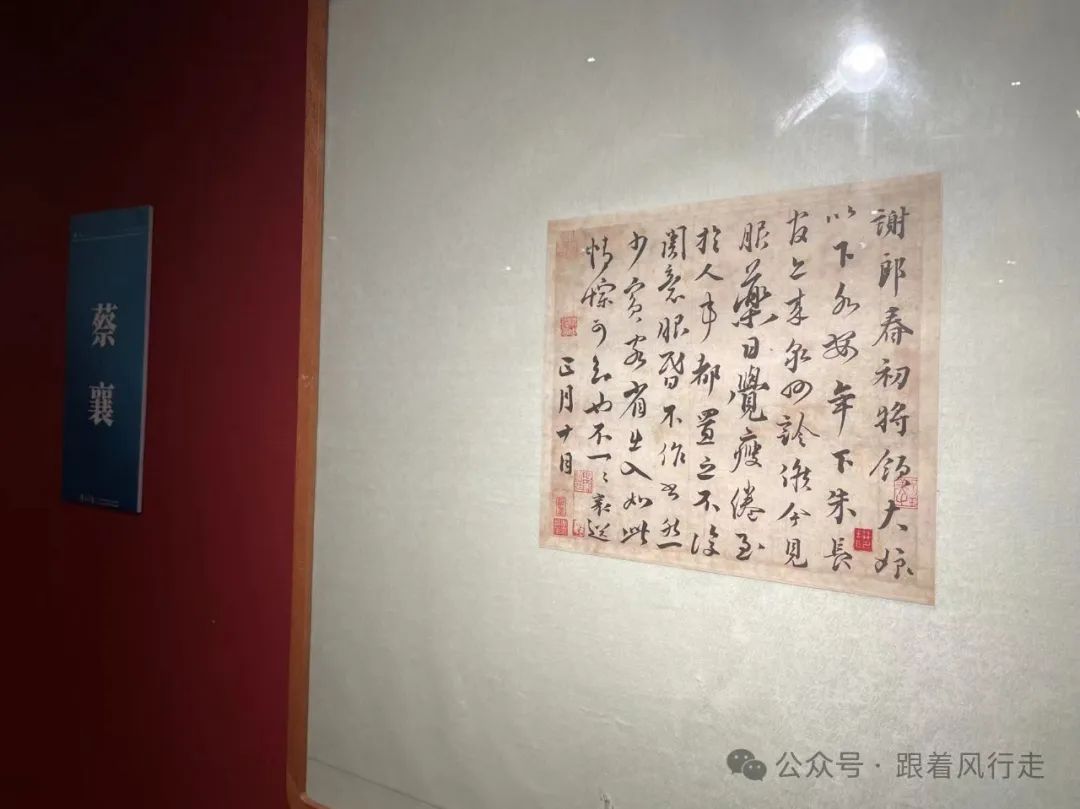 蔡襄
謝郎春初將領大娘
以下各安年下朱長
官亦來泉州診候今見
服藥日覺瘦倦至
於人事都置之不復
關意眼昏不作書然
少賓客省出入如此
情悰可知也不一一襄送
正月十日
公众号·跟着风行走